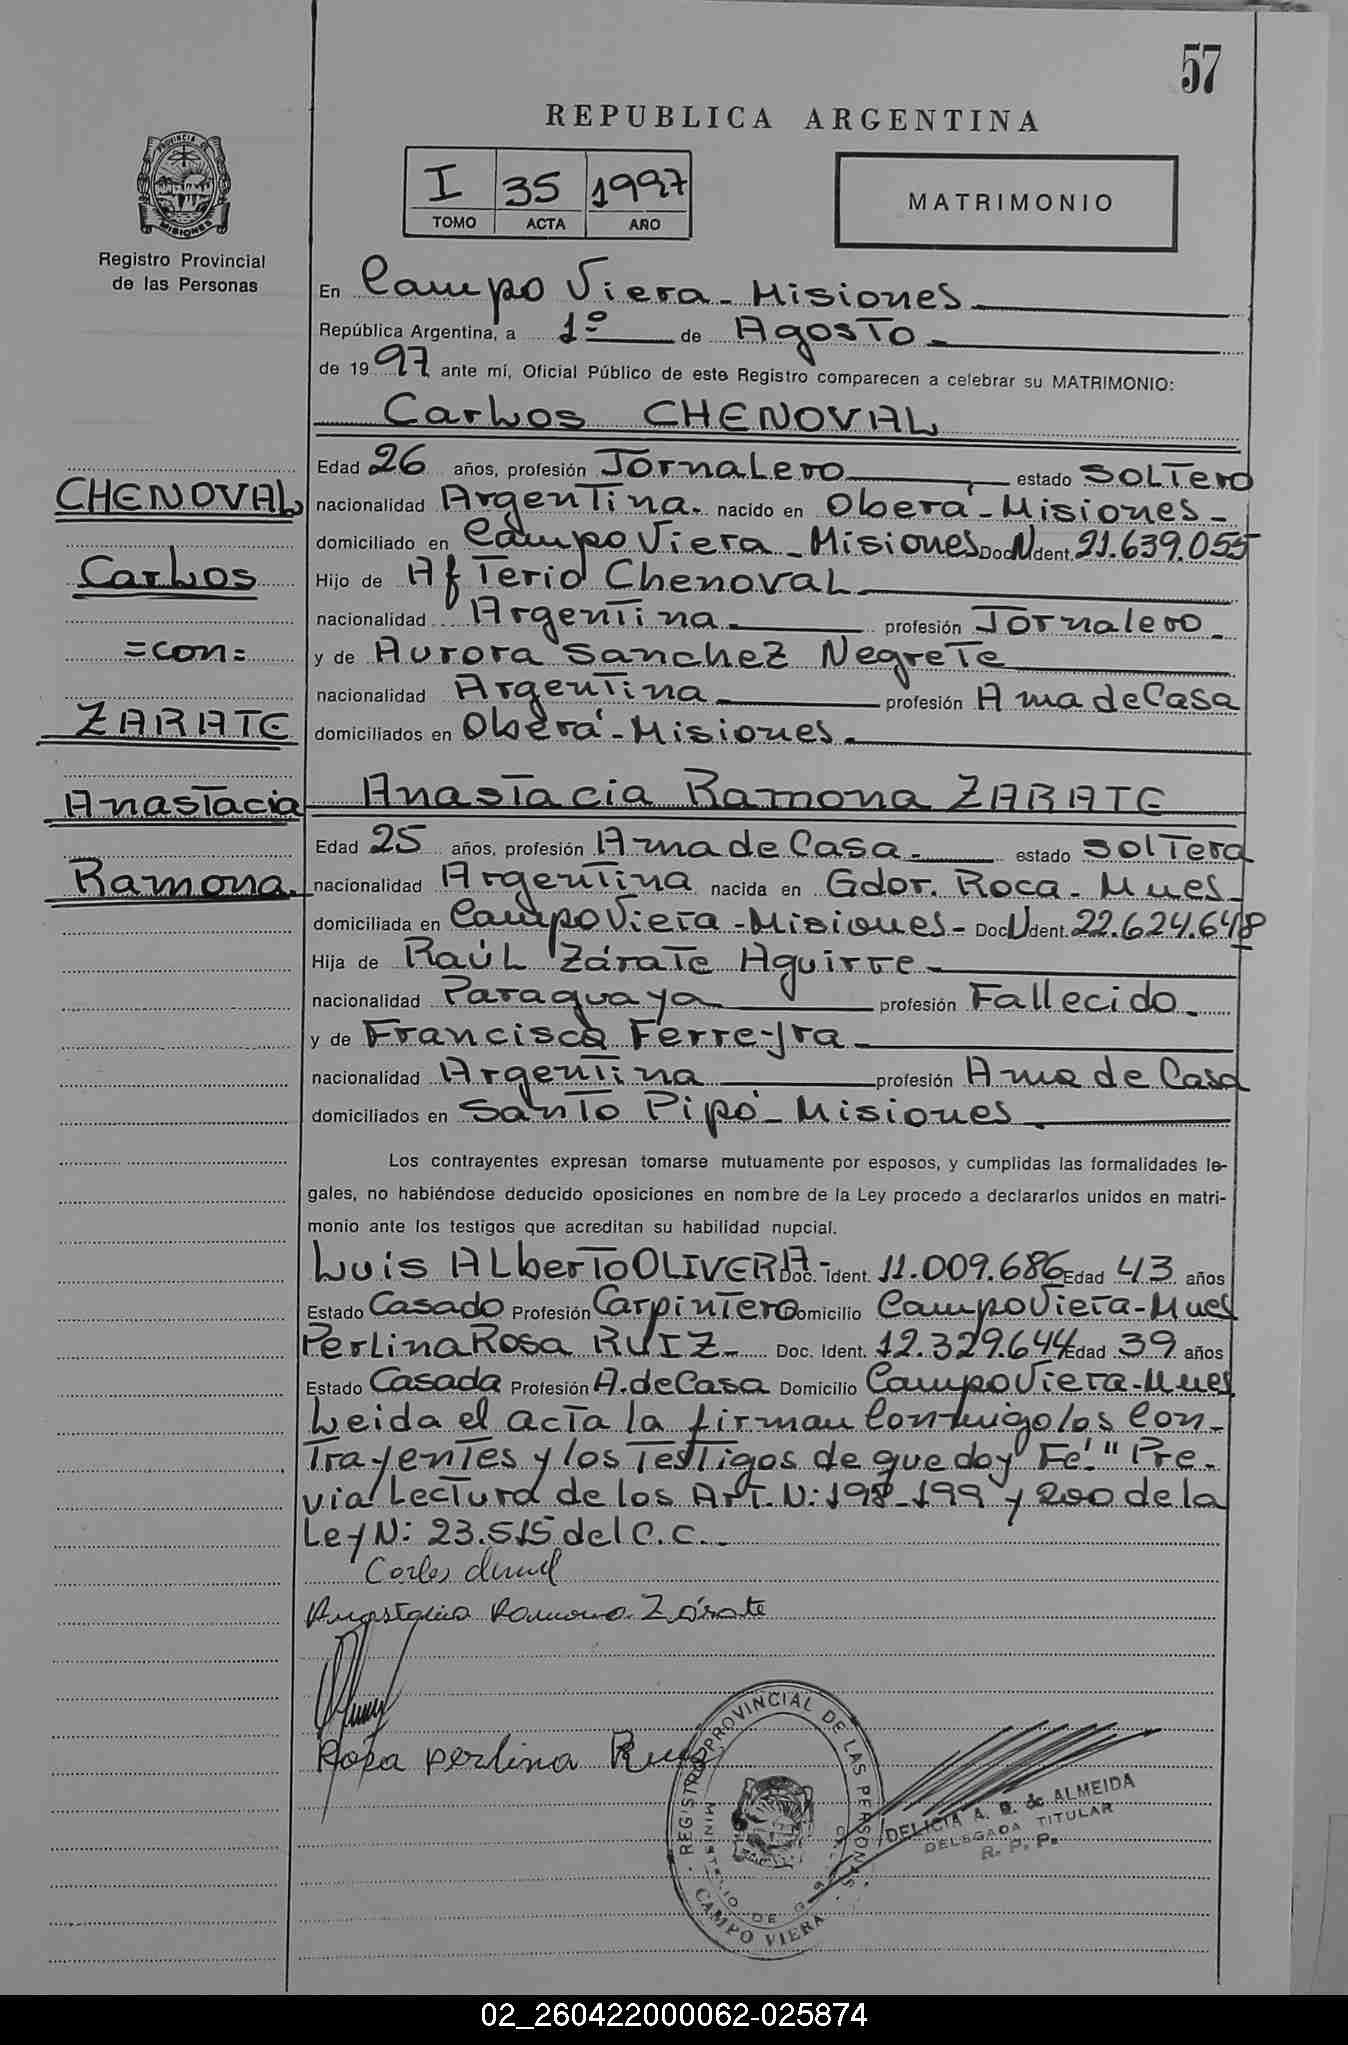 57
REPUBLICA ARGENTINA
PROVINCIA DE
MISIONES
Registro Provincial
de las Personas
I 35 1997
TOMO ACTA AÑO
MATRIMONIO
En Campo Viera - Misiones
República Argentina, a 1º de Agosto -
de 19 97 ante mí, Oficial Público de este Registro comparecen a celebrar su MATRIMONIO:
Carlos CHENOVAL
CHENOVAL
Carlos
=con=
ZARATE
Anastacia
Ramona.
Edad 26 años, profesión Jornalero estado Soltero
nacionalidad Argentina. nacido en Oberá - Misiones -
domiciliado en Campo Viera - Misiones Doc N Ident. 21.639.055
Hijo de Afterio Chenoval
nacionalidad Argentina profesión Jornalero.
y de Aurora Sanchez Negrete
nacionalidad Argentina profesión Ama de Casa
domiciliados en Oberá - Misiones.
Anastacia Ramona ZARATE
Edad 25 años, profesión Ama de Casa. estado Soltera
nacionalidad Argentina nacida en Gdor. Roca - Mnes -
domiciliada en Campo Viera - Misiones - Doc N Ident. 22.624.648
Hija de Raúl Zárate Aguirre
nacionalidad Paraguaya profesión Fallecido.
y de Francisca Ferreyra
nacionalidad Argentina profesión Ama de Casa
domiciliados en Santo Pipó - Misiones
Los contrayentes expresan tomarse mutuamente por esposos, y cumplidas las formalidades le-
gales, no habiéndose deducido oposiciones en nombre de la Ley procedo a declararlos unidos en matri-
monio ante los testigos que acreditan su habilidad nupcial.
Luis Alberto OLIVERA - Doc. Ident. 11.009.686 Edad 43 años
Estado Casado Profesión Carpintero Domicilio Campo Viera - Mnes
Perlina Rosa RUIZ - Doc. Ident. 12.329.644 Edad 39 años
Estado Casada Profesión A. de Casa Domicilio Campo Viera - Mnes
Leida el acta la firman Conmigo los Con-
trayentes y los Testigos de que doy Fé." Pre-
via Lectura de los Art. N: 198-199 y 200 de la
Ley N: 23.515 del C.C.
Carlos
Anastacia Ramona Zárate
Rosa perlina Ruiz
REGISTRO PROVINCIAL DE LAS PERSONAS
MINISTERIO DE
CAMPO VIERA
DELICIA A. G. de ALMEIDA
DELEGADA TITULAR
R. P. P.
02_260422000062-025874